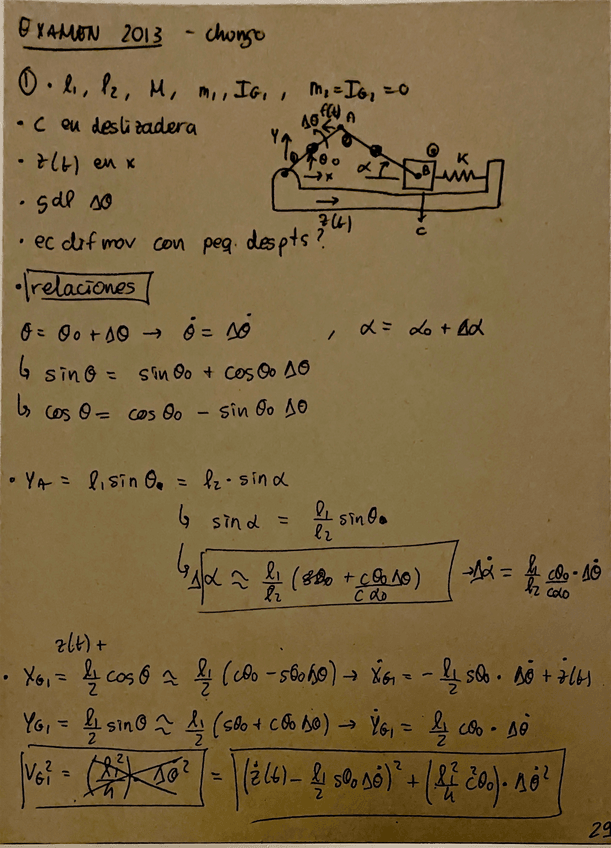 EXAMEN 2013 - chungo
① • l₁, l₂, M, m₁, I_G₁, m₂=I_G₂=0
• C en deslizadera
• z(t) en x
• gdl Δθ
• ec dif mov con peq. despts?
f(t) A
Δθ
Y
θ₀
x
α
B
K
z(t)
C
• relaciones
θ = θ₀ + Δθ → θ̇ = Δθ̇ , α = α₀ + Δα
↳ sinθ = sinθ₀ + cosθ₀ Δθ
↳ cosθ = cosθ₀ - sinθ₀ Δθ
• Y_A = l₁ sinθ = l₂ · sinα
↳ sinα = l₁/l₂ sinθ
↳ Δα ≈ l₁/l₂ (cθ₀ Δθ / cα₀) → Δα̇ = l₁/l₂ cθ₀/cα₀ · Δθ̇
z(t) +
• X_G₁ = l₁/2 cosθ ≈ l₁/2 (cθ₀ - sθ₀ Δθ) → Ẋ_G₁ = - l₁/2 sθ₀ · Δθ̇ + ż(t)
Y_G₁ = l₁/2 sinθ ≈ l₁/2 (sθ₀ + cθ₀ Δθ) → Ẏ_G₁ = l₁/2 cθ₀ · Δθ̇
V_G₁² = (l₁²/4) Δθ̇² = (ż(t) - l₁/2 sθ₀ Δθ̇)² + (l₁²/4 c²θ₀) · Δθ̇²
29